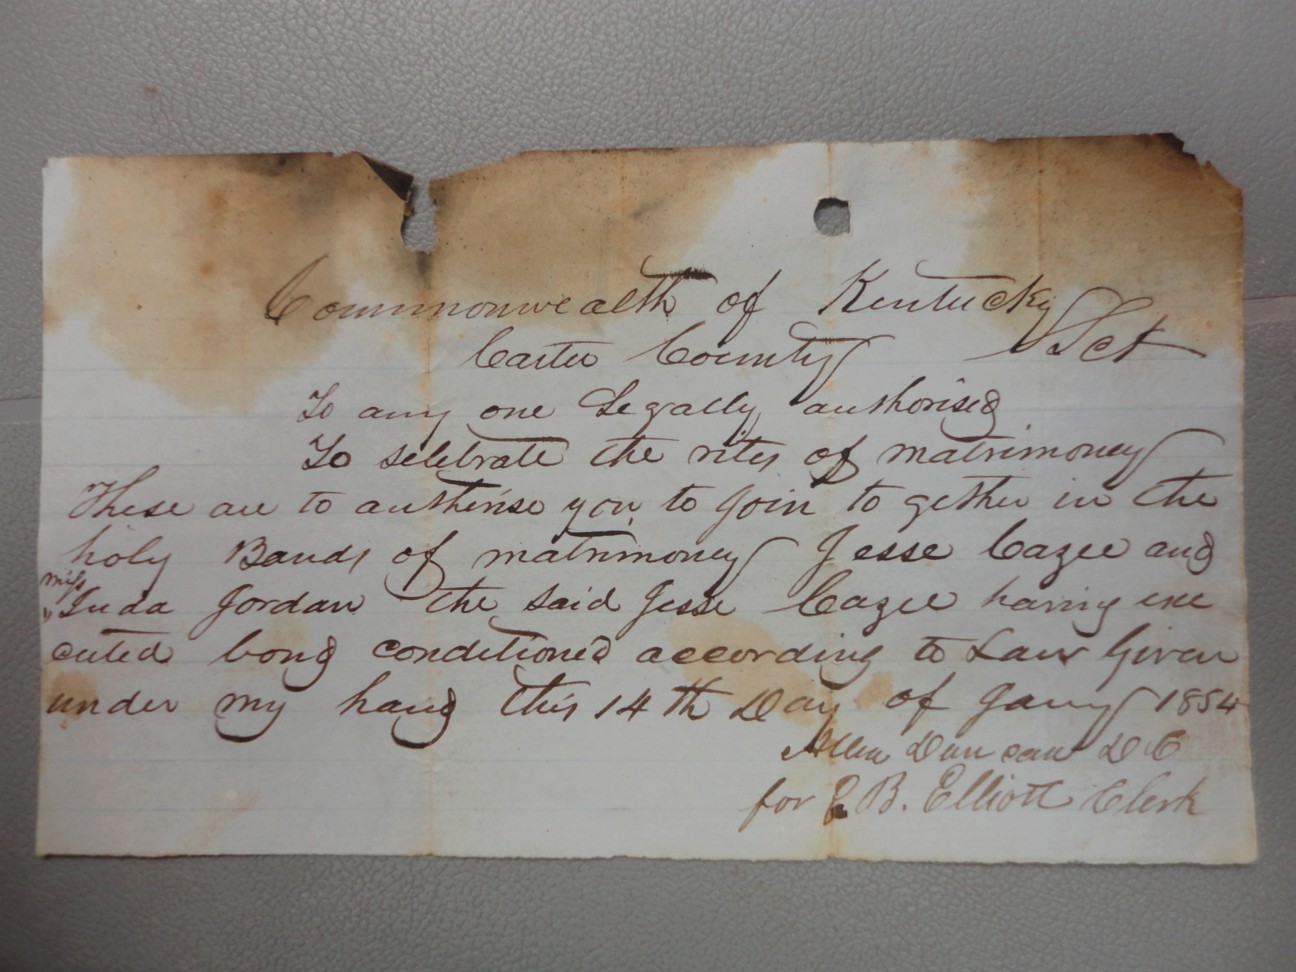 Commonwealth of Kentucky
Carter County Sct
To any one Legally authorised
To selebrate the rites of matrimoney
These are to authorise you to join to gether in the
holy Bands of matrimoney Jesse Cazee and
miss
Juda Jordan the said Jesse Cazee having exe
cuted bond conditioned according to Law Given
under my hand this 14th Day of Jany 1854
Allen Duncan D C
for E. B. Elliott Clerk